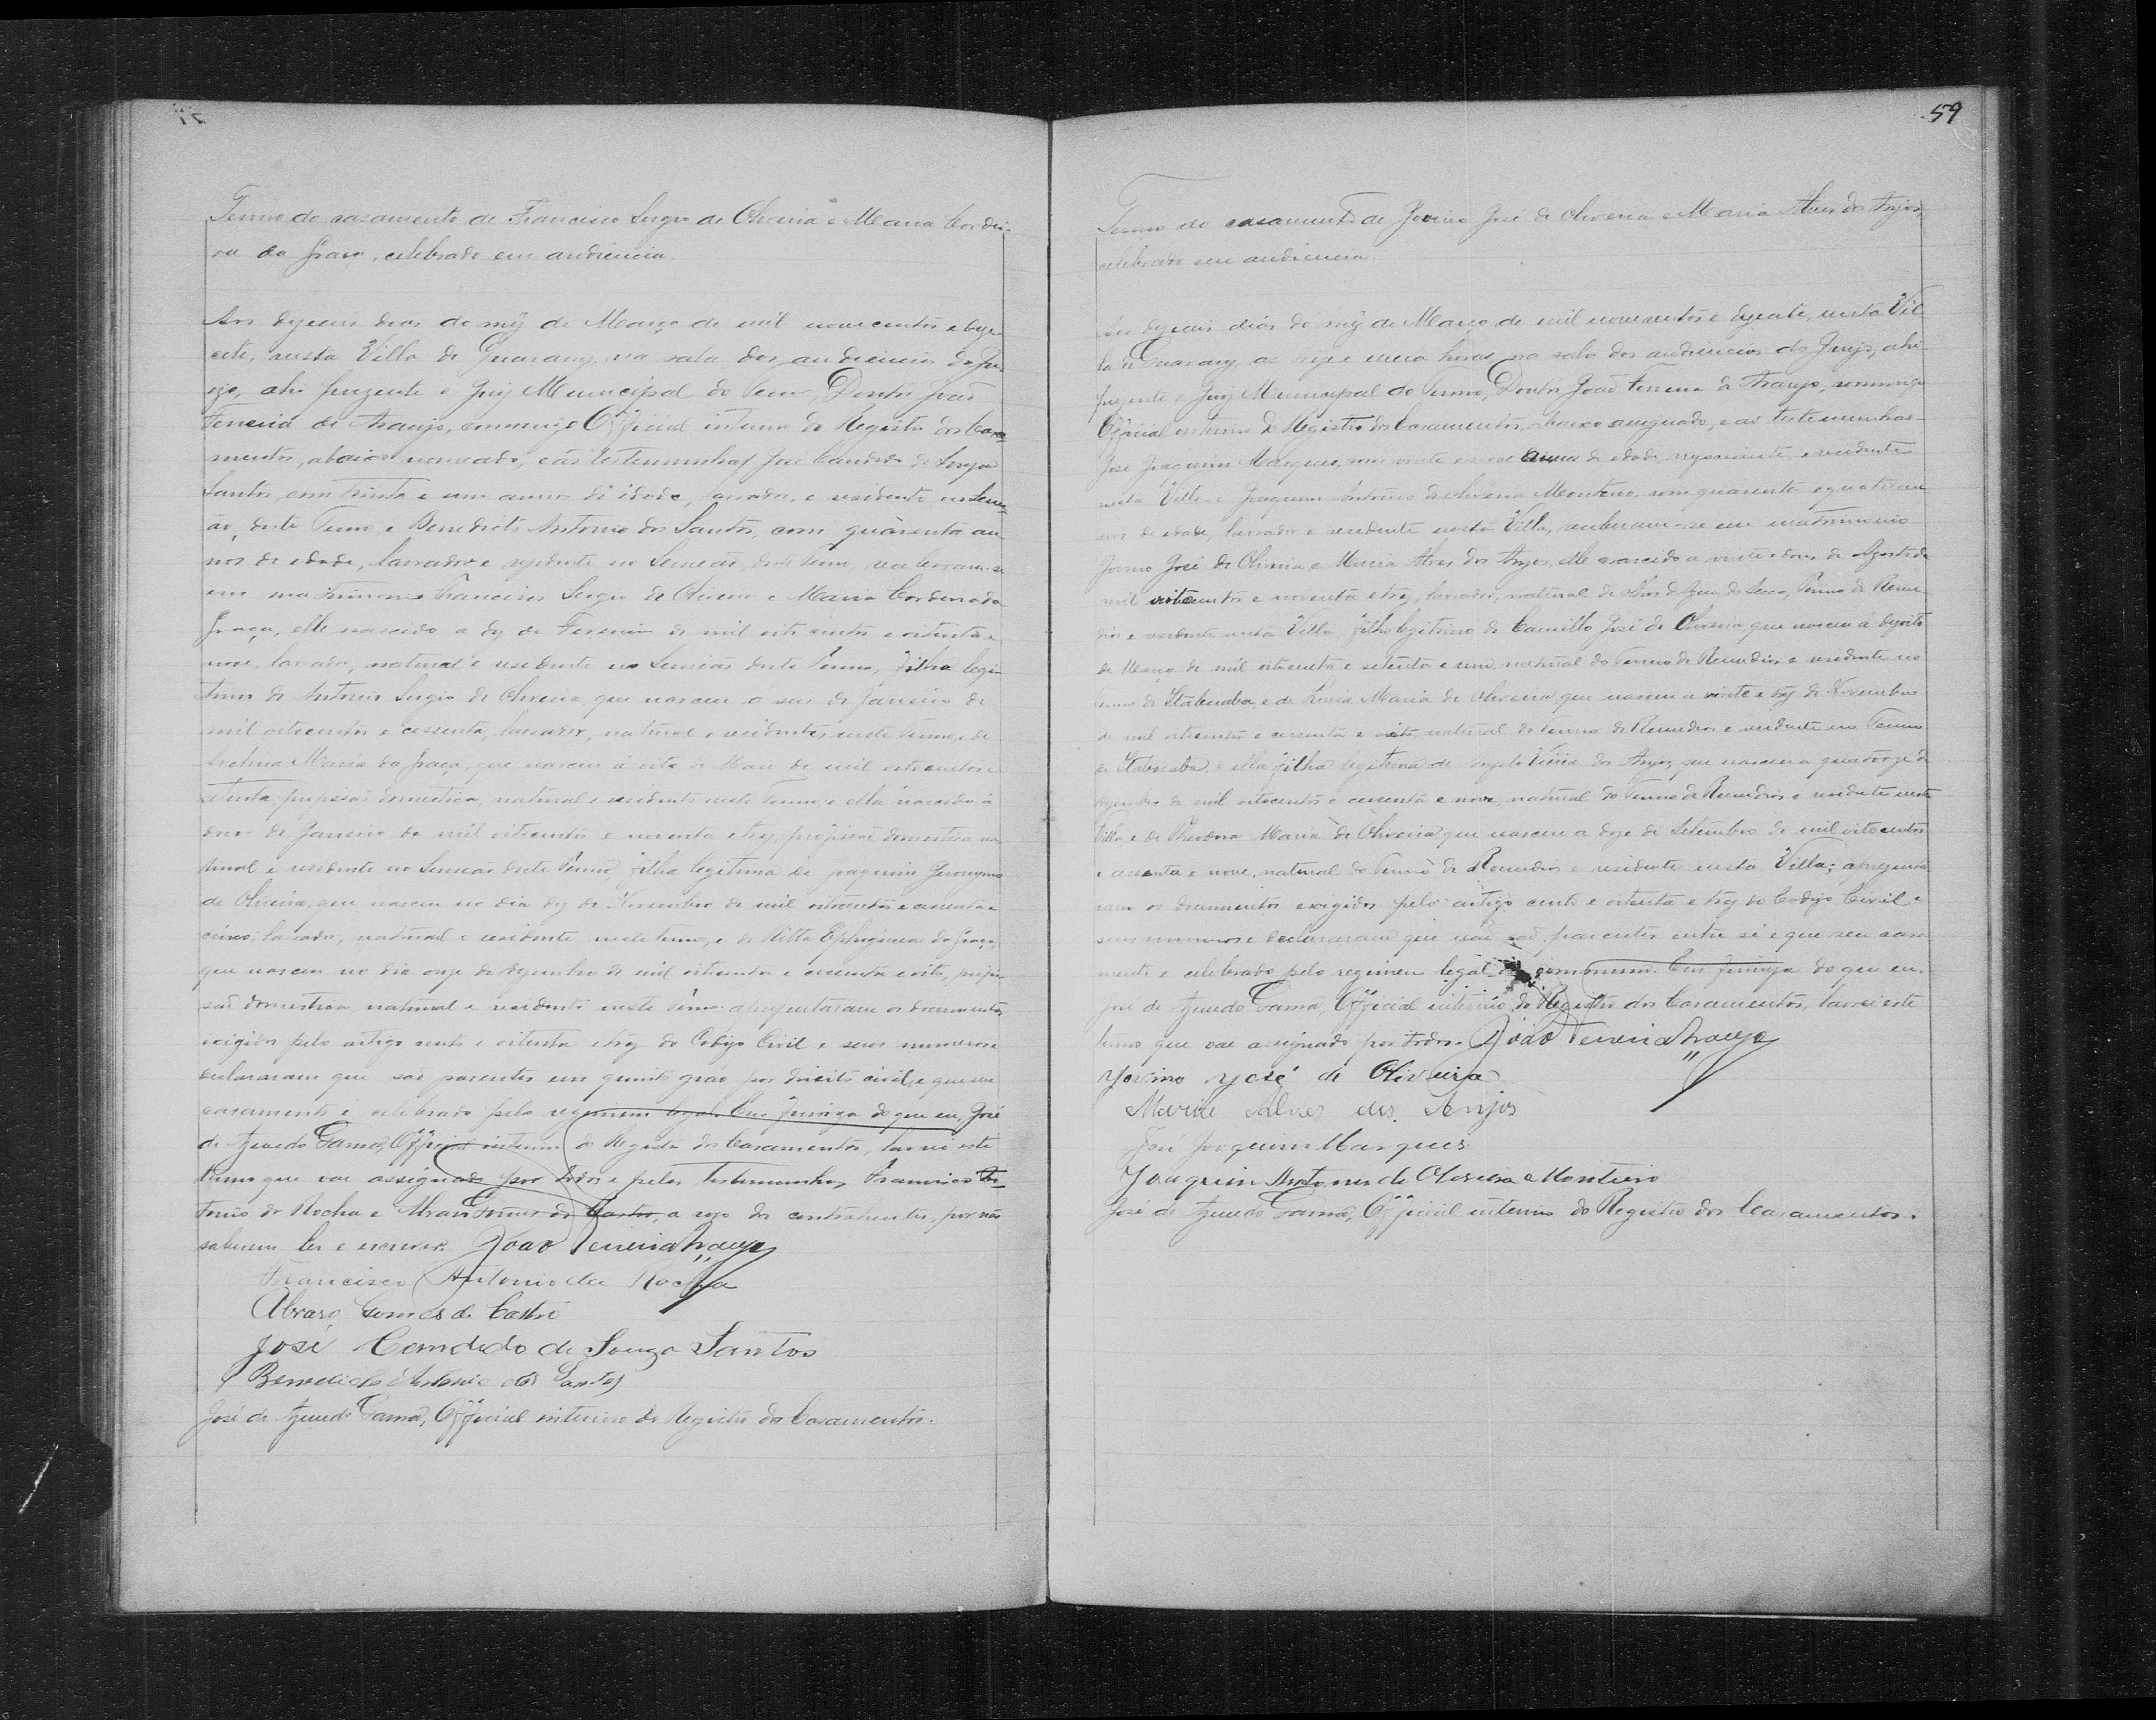 Termo do casamento de Francisco Sergio de Oliveira e Maria Cordei-
ra da Graça, celebrado em audiencia.
Aos dezeseis dias do mez de Março de mil novecentos e deze-
sete, nesta Villa de Guarany, na sala das audiencias do Jui-
zo, ahi prezente o Juiz Municipal do Termo, Doutor João
Ferreira de Araujo, commigo Official interino do Registro dos Casa-
mentos, abaixo nomeado, e as testemunhas José Candido de Souza
Santos, com trinta e um annos de idade, lavrador, e residente no
deste Termo, e Benedicto Antonio dos Santos, com quarenta an-
nos de edade, lavrador e rezidente no deste Termo, receberam-se
em matrimonio Francisco Sergio de Oliveira e Maria Cordeira da
Graça, elle nascido a dez de de mil oito centos e oitenta e
nove, lavrador, natural e residente no deste Termo, filho legi-
timo de Antonio Sergio de Oliveira que nasceu a seis de Janeiro de
mil oitocentos e cessenta, lavrador, natural e residente neste Termo, e de
Maria da Graça, que nasceu á oito de Maio de mil oitocentos e
setenta, profissão domestica, natural e residente neste Termo; e ella nascida á
doze de Janeiro de mil oitocentos e noventa e trez, profissão domestica, na-
tural e residente no deste Termo, filha legitima de Joaquim Jeronymo
de Oliveira, que nasceu no dia dez de Novembro de mil oitocentos e cessenta e
cinco, lavrador, natural e residente neste termo, e de Ritta Ephigenia da Graça,
que nasceu no dia onze de Dezembro de mil oitocentos e cessenta e oito, profis-
são domestica, natural e residente neste Termo: aprezentaram os documentos
exigidos pelo artigo cento e oitenta e trez do Codigo Civil e seus numeros e
declararam que são parentes em quinto gráo por direito civil, e que seu
casamento é celebrado pelo regimem legal. Em firmeza do que eu, José
de Azevedo Gama, Official interino do Registro dos Casamentos, lavrei este
termo que vae assignado por todos e pelas testemunhas Francisco An-
tonio da Rocha e Alvaro Gomes de Castro, a rogo dos contrahentes, por não
saberem ler e escrever. João Ferreira Araujo
Francisco Antonio da Rocha
Alvaro Gomes de Castro
José Candido de Souza Santos
Benedicto Antonio dos Santos
José de Azevedo Gama, Official interino do Registro dos Casamentos.
59
Termo do casamento de Jovino José de Oliveira e Maria Alves dos Anjos,
celebrado em audiencia.
Aos dezeseis dias do mez de Março de mil novecentos e dezesete, nesta Vil-
la de Guarany, as e meia horas, na sala das audiencias do Juizo, ahi
prezente o Juiz Municipal do Termo, Doutor João Ferreira de Araujo, commigo
Official interino do Registro dos Casamentos, abaixo assignado, e as testemunhas
José Joaquim Marques, com vinte e nove annos de edade, negociante, e residente
nesta Villa e Joaquim Antonio de Oliveira Monteiro, com quarenta e quatro an-
nos de edade, lavrador e residente nesta Villa, receberam-se em matrimonio
Jovino José de Oliveira e Maria Alves dos Anjos, elle nascido a vinte e dous de Agosto de
mil oitocentos e noventa e trez, lavrador, natural de Olhos d'Agua do Secco, Termo de Reme-
dios e residente nesta Villa, filho legitimo de Camillo José de Oliveira, que nasceu á dezoito
de Março de mil oitocentos e setenta e um, natural do Termo de Remedios e residente no
Termo de Itaberaba, e de Luzia Maria de Oliveira que nasceu a vinte e trez de Novembro
de mil oitocentos e cessenta e oito, natural do Termo de Remedios e residente no Termo
de Itaberaba, e ella filha legitima de Angelo Vieira dos Anjos, que nasceu a quatorze de
Dezembro de mil oitocentos e cessenta e nove, natural do Termo de Remedios e residente nesta
Villa e de Theodora Maria de Oliveira que nasceu a doze de Setembro de mil oitocentos
e cessenta e nove, natural do Termo de Remedios e residente nesta Villa; aprezenta-
ram os documentos exigidos pelo artigo cento e oitenta e trez do Codigo Civil e
seus numeros e declararam que não são parentes entre si e que seu casa-
mento é celebrado pelo regimen legal commum. Em firmeza do que eu,
José de Azevedo Gama, Official interino do Registro dos Casamentos, lavrei este
termo que vae assignado por todos. João Ferreira Araujo
Jovino José de Oliveira
Maria Alves dos Anjos
José Joaquim Marques
Joaquim Antonio de Oliveira Monteiro
José de Azevedo Gama, Official interino do Registro dos Casamentos.